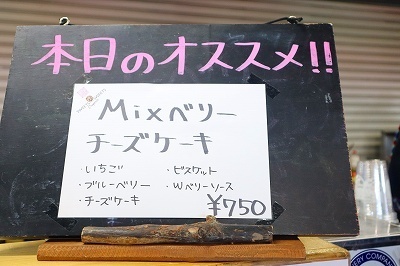 本日のオススメ!!
Mixベリー
チーズケーキ
・いちご
・ブルーベリー
・チーズケーキ
・ビスケット
・Wベリーソース
¥750
ERY COMPAN